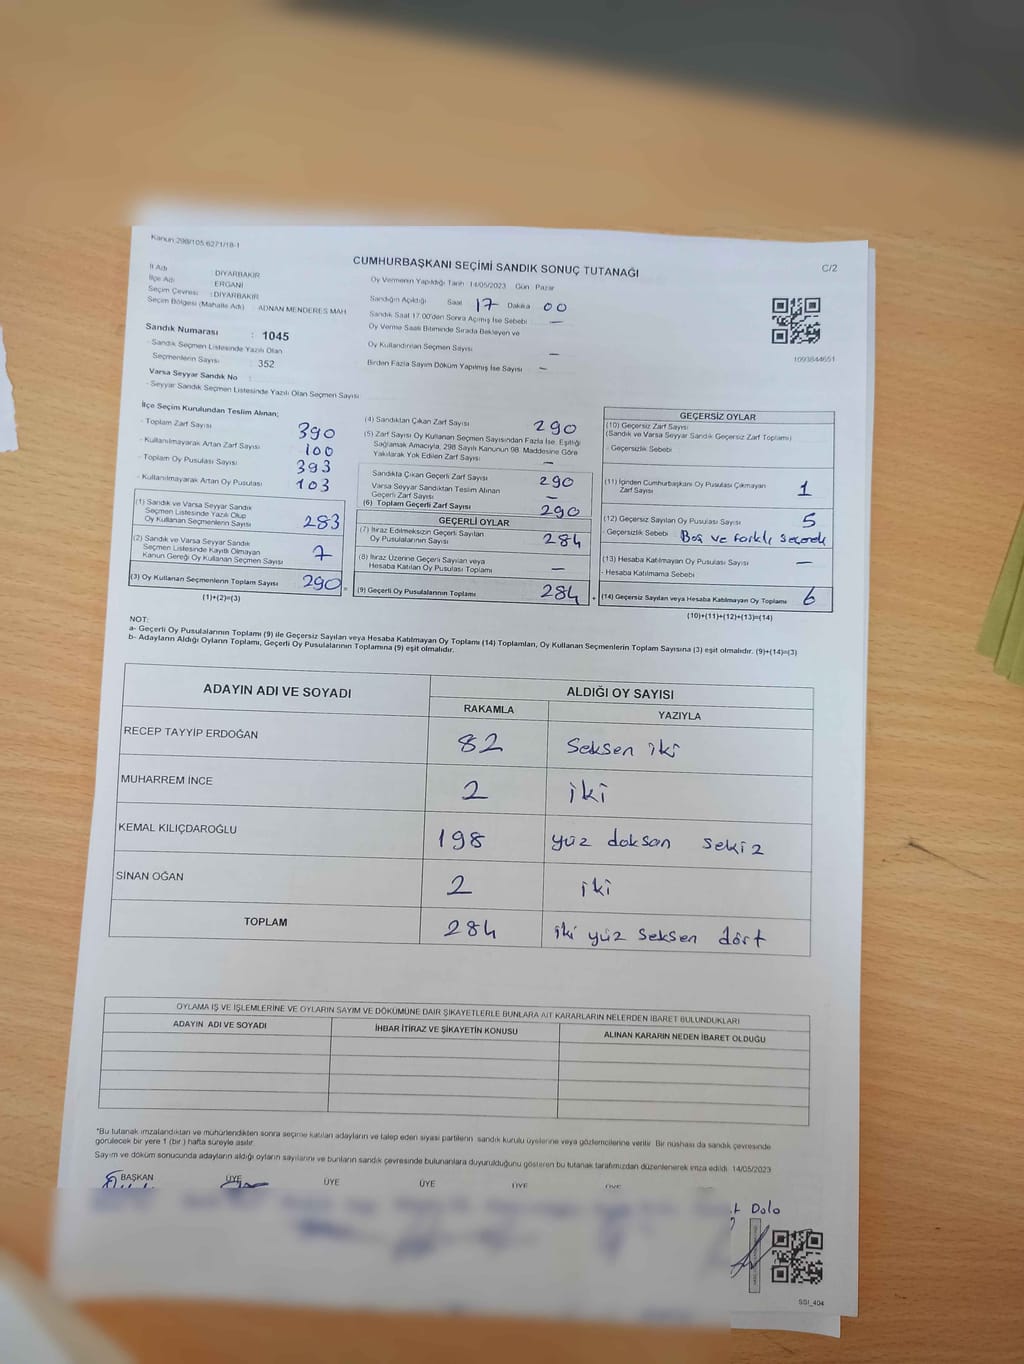 Kanun:298/105.6271/18-1
C/2
CUMHURBAŞKANI SEÇİMİ SANDIK SONUÇ TUTANAĞI
İl Adı : DİYARBAKIR
İlçe Adı : ERGANİ
Seçim Çevresi : DİYARBAKIR
Seçim Bölgesi (Mahalle Adı) : ADNAN MENDERES MAH
Oy Vermenin Yapıldığı Tarih 14/05/2023 Gün Pazar
Sandığın Açıldığı Saat 17 Dakika 00
Sandık Saat 17.00'den Sonra Açılmış İse Sebebi —
Oy Verme Saati Bitiminde Sırada Bekleyen ve
Oy Kullandırılan Seçmen Sayısı —
Birden Fazla Sayım Döküm Yapılmış İse Sayısı —
1093844651
Sandık Numarası : 1045
- Sandık Seçmen Listesinde Yazılı Olan
Seçmenlerin Sayısı : 352
Varsa Seyyar Sandık No :
- Seyyar Sandık Seçmen Listesinde Yazılı Olan Seçmen Sayısı :
İlçe Seçim Kurulundan Teslim Alınan;
- Toplam Zarf Sayısı 390
- Kullanılmayarak Artan Zarf Sayısı 100
- Toplam Oy Pusulası Sayısı 393
- Kullanılmayarak Artan Oy Pusulası 103
(1) Sandık ve Varsa Seyyar Sandık
Seçmen Listesinde Yazılı Olup
Oy Kullanan Seçmenlerin Sayısı 283
(2) Sandık ve Varsa Seyyar Sandık
Seçmen Listesinde Kayıtlı Olmayan
Kanun Gereği Oy Kullanan Seçmen Sayısı 7
(3) Oy Kullanan Seçmenlerin Toplam Sayısı 290
(1)+(2)=(3)
(4) Sandıktan Çıkan Zarf Sayısı 290
(5) Zarf Sayısı Oy Kullanan Seçmen Sayısından Fazla İse, Eşitliği
Sağlamak Amacıyla, 298 Sayılı Kanunun 98. Maddesine Göre
Yakılarak Yok Edilen Zarf Sayısı —
Sandıkta Çıkan Geçerli Zarf Sayısı 290
Varsa Seyyar Sandıktan Teslim Alınan
Geçerli Zarf Sayısı —
(6) Toplam Geçerli Zarf Sayısı 290
GEÇERLİ OYLAR
(7) İtiraz Edilmeksizin Geçerli Sayılan
Oy Pusulalarının Sayısı 284
(8) İtiraz Üzerine Geçerli Sayılan veya
Hesaba Katılan Oy Pusulası Toplamı —
(9) Geçerli Oy Pusulalarının Toplamı 284
GEÇERSİZ OYLAR
(10) Geçersiz Zarf Sayısı
(Sandık ve Varsa Seyyar Sandık Geçersiz Zarf Toplamı)
- Geçersizlik Sebebi
(11) İçinden Cumhurbaşkanı Oy Pusulası Çıkmayan
Zarf Sayısı 1
(12) Geçersiz Sayılan Oy Pusulası Sayısı 5
- Geçersizlik Sebebi Boş ve farklı seçenek
(13) Hesaba Katılmayan Oy Pusulası Sayısı —
- Hesaba Katılmama Sebebi
(14) Geçersiz Sayılan veya Hesaba Katılmayan Oy Toplamı 6
(10)+(11)+(12)+(13)=(14)
NOT:
a- Geçerli Oy Pusulalarının Toplamı (9) ile Geçersiz Sayılan veya Hesaba Katılmayan Oy Toplamı (14) Toplamları, Oy Kullanan Seçmenlerin Toplam Sayısına (3) eşit olmalıdır. (9)+(14)=(3)
b- Adayların Aldığı Oyların Toplamı, Geçerli Oy Pusulalarının Toplamına (9) eşit olmalıdır.
ADAYIN ADI VE SOYADI ALDIĞI OY SAYISI
RAKAMLA YAZIYLA
RECEP TAYYİP ERDOĞAN 82 Seksen iki
MUHARREM İNCE 2 iki
KEMAL KILIÇDAROĞLU 198 yüz doksan sekiz
SİNAN OĞAN 2 iki
TOPLAM 284 iki yüz seksen dört
OYLAMA İŞ VE İŞLEMLERİNE VE OYLARIN SAYIM VE DÖKÜMÜNE DAİR ŞİKAYETLERLE BUNLARA AİT KARARLARIN NELERDEN İBARET BULUNDUKLARI
ADAYIN ADI VE SOYADI İHBAR İTİRAZ VE ŞİKAYETİN KONUSU ALINAN KARARIN NEDEN İBARET OLDUĞU
*Bu tutanak imzalandıktan ve mühürlendikten sonra seçime katılan adayların ve talep eden siyasi partilerin sandık kurulu üyelerine veya gözlemcilerine verilir. Bir nüshası da sandık çevresinde
görülecek bir yere 1 (bir) hafta süreyle asılır.
Sayım ve döküm sonucunda adayların aldığı oyların sayılarını ve bunların sandık çevresinde bulunanlara duyurulduğunu gösteren bu tutanak tarafımızdan düzenlenerek imza edildi. 14/05/2023
BAŞKAN ÜYE ÜYE ÜYE ÜYE ÜYE
Dolo
SSI_404